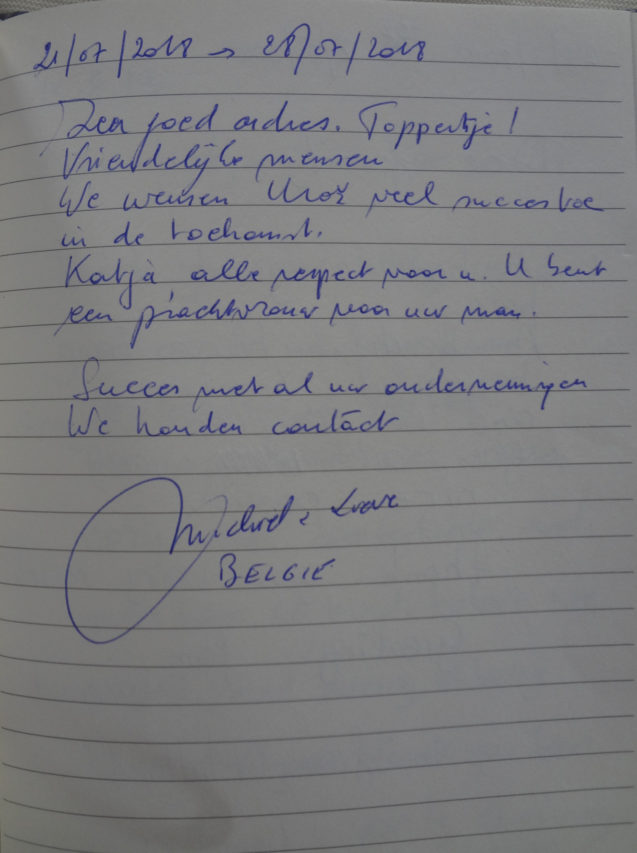 21/07/2018 → 28/07/2018
Zeer goed adres. Toppertje!
Vriendelijke mensen
We wensen Uroš veel succes toe
in de toekomst.
Katja alle respect voor u. U bent
een prachtvrouw voor uw man.
Succes met al uw ondernemingen
We houden contact
BELGIË